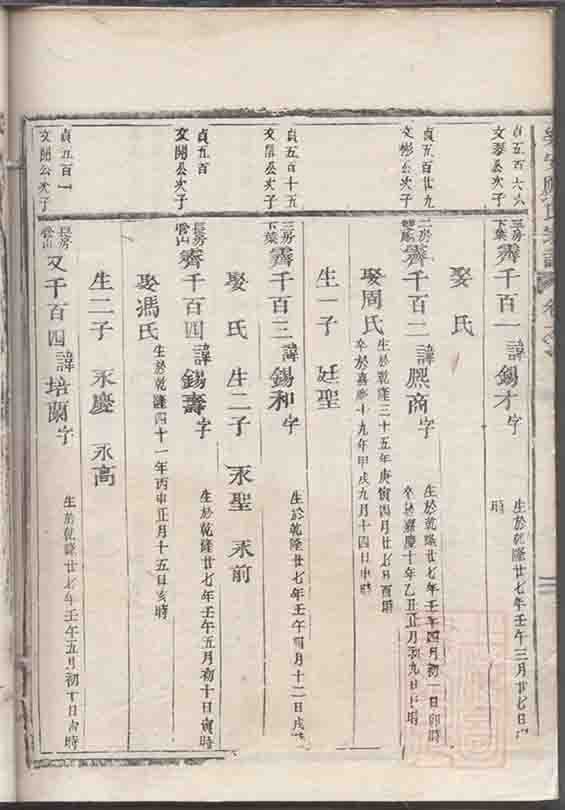 貞五百六六
文泰公次子
三房
下葉
霽千百一 諱錫才字
生於乾隆廿七年壬午三月廿七日
時
娶 氏
貞五百廿九
文彬公次子
二房
霽千百二 諱熙商字
生於乾隆廿七年壬午四月初一日卯時
卒於嘉慶十年乙丑正月初九日 時
娶周氏
生於乾隆三十五年庚寅四月廿七日酉時
卒於嘉慶十九年甲戌九月十四日申時
生一子 廷聖
貞五百十五
公次子
三房
下葉
霽千百三 諱錫和字
生於乾隆廿七年壬午四月十二日戌
娶 氏 生二子 永聖 永前
貞五百
文開公次子
長房
管山
霽千百四 諱錫壽字
生於乾隆廿七年壬午五月初十日寅時
娶馮氏
生於乾隆四十一年丙申正月十五日亥時
生二子 永慶 永高
貞五百
文開公次子
長房
管山
又千百四 諱培蘭字
生於乾隆廿七年壬午五月初十日寅時